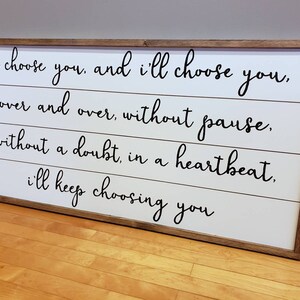 choose you, and i'll choose you,
over and over, without pause,
without a doubt, in a heartbeat,
i'll keep choosing you